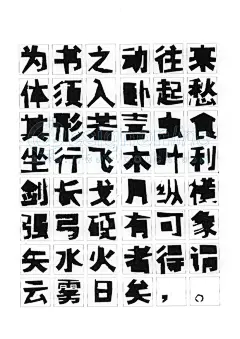 为书之动往来
体须入卧起愁
其形若喜土食
坐行飞木叶利
剑长戈月纵横
强弓硬有可象
矢水火者得谓
云雾日矣，。